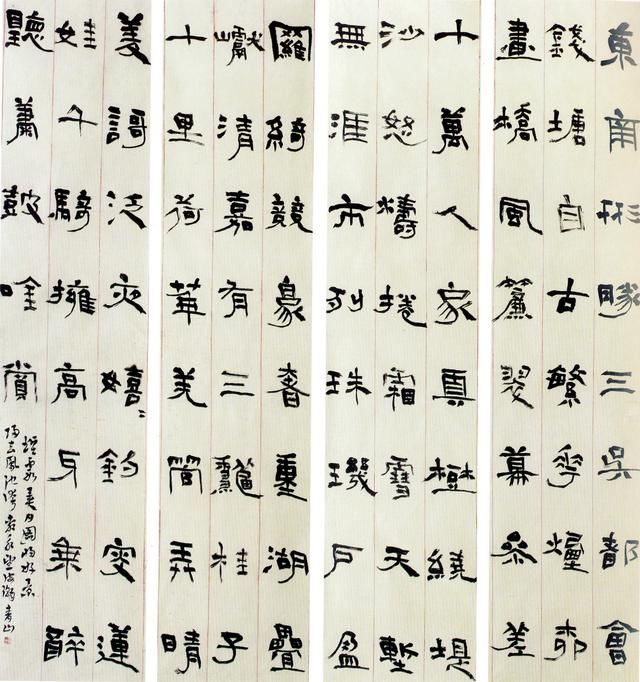 東南形勝三吳都會
錢塘自古繁華煙柳
畫橋風簾翠幕參差
十萬人家真樹繞堤
沙怒濤捲霜雪天塹
無涯市列珠璣戶盈
羅綺競豪奢重湖疊
巘清嘉有三龝桂子
十里荷華羌管弄晴
菱謌泛夜嬉〻釣叟蓮
娃千騎擁高牙乘醉
聽簫鼓吟賞
煙霞異日圖將好景
歸去鳳池誇 永望海潮 青山